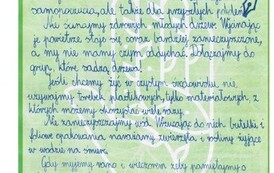 samopoczucia, ale także dla przyszłych pokoleń.
Nie usuwajmy zdrowych młodych drzew. Wycinając
je powietrze staje się coraz bardziej zanieczyszczone,
a my nie mamy czym oddychać. Dołączajmy do
grup, które sadzą drzewa.
Jeśli chcemy żyć w czystym środowisku nie
używajmy torebek plastikowych, tylko materiałowych, z
których możemy skorzystać wielokrotnie.
Nie zanieczyszczajmy wód. Wrzucając do nich butelki i
foliowe opakowania narażamy zwierzęta i rośliny żyjące
w wodzie na śmierć.
Gdy myjemy rano i wieczorem zęby pamiętajmy o